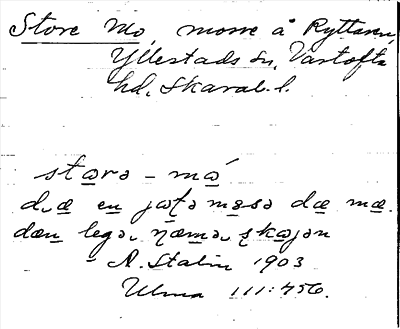 Store Mo, mosse å Ryttaren,
Yllestads sn, Vartofta
hd, Skarab. l.
stọrə - mọ́
dæ en jætə məsə dæ mæ.
dæn legə, næmə, skəjən
A. Stalin 1903
Ulma 111:456.